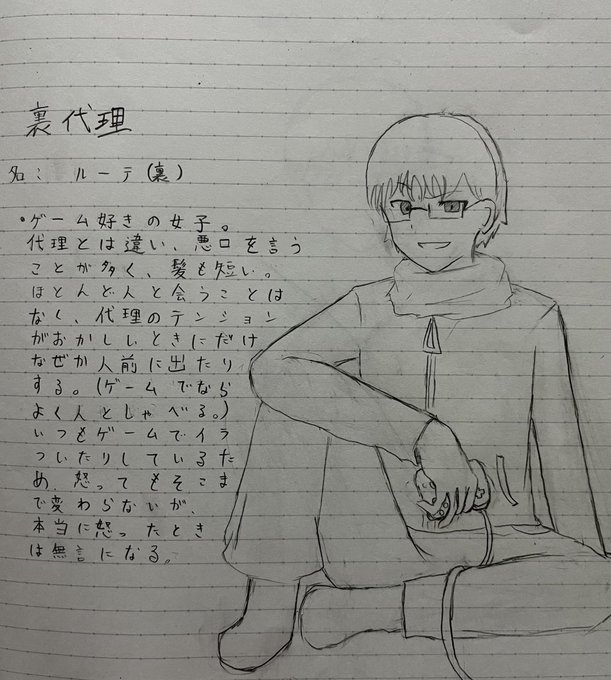 裏代理
名: ルーテ(裏)
・ゲーム好きの女子。
代理とは違い、悪口を言う
ことが多く、髪も短い。
ほとんど人と会うことは
なく、代理のテンション
がおかしいときにだけ
なぜか人前に出たり
する。(ゲームでなら
よく人としゃべる。)
いつもゲームでイラ
ついたりしているた
め、怒ってもそこま
で変わらないが、
本当に怒ったとき
は無言になる。